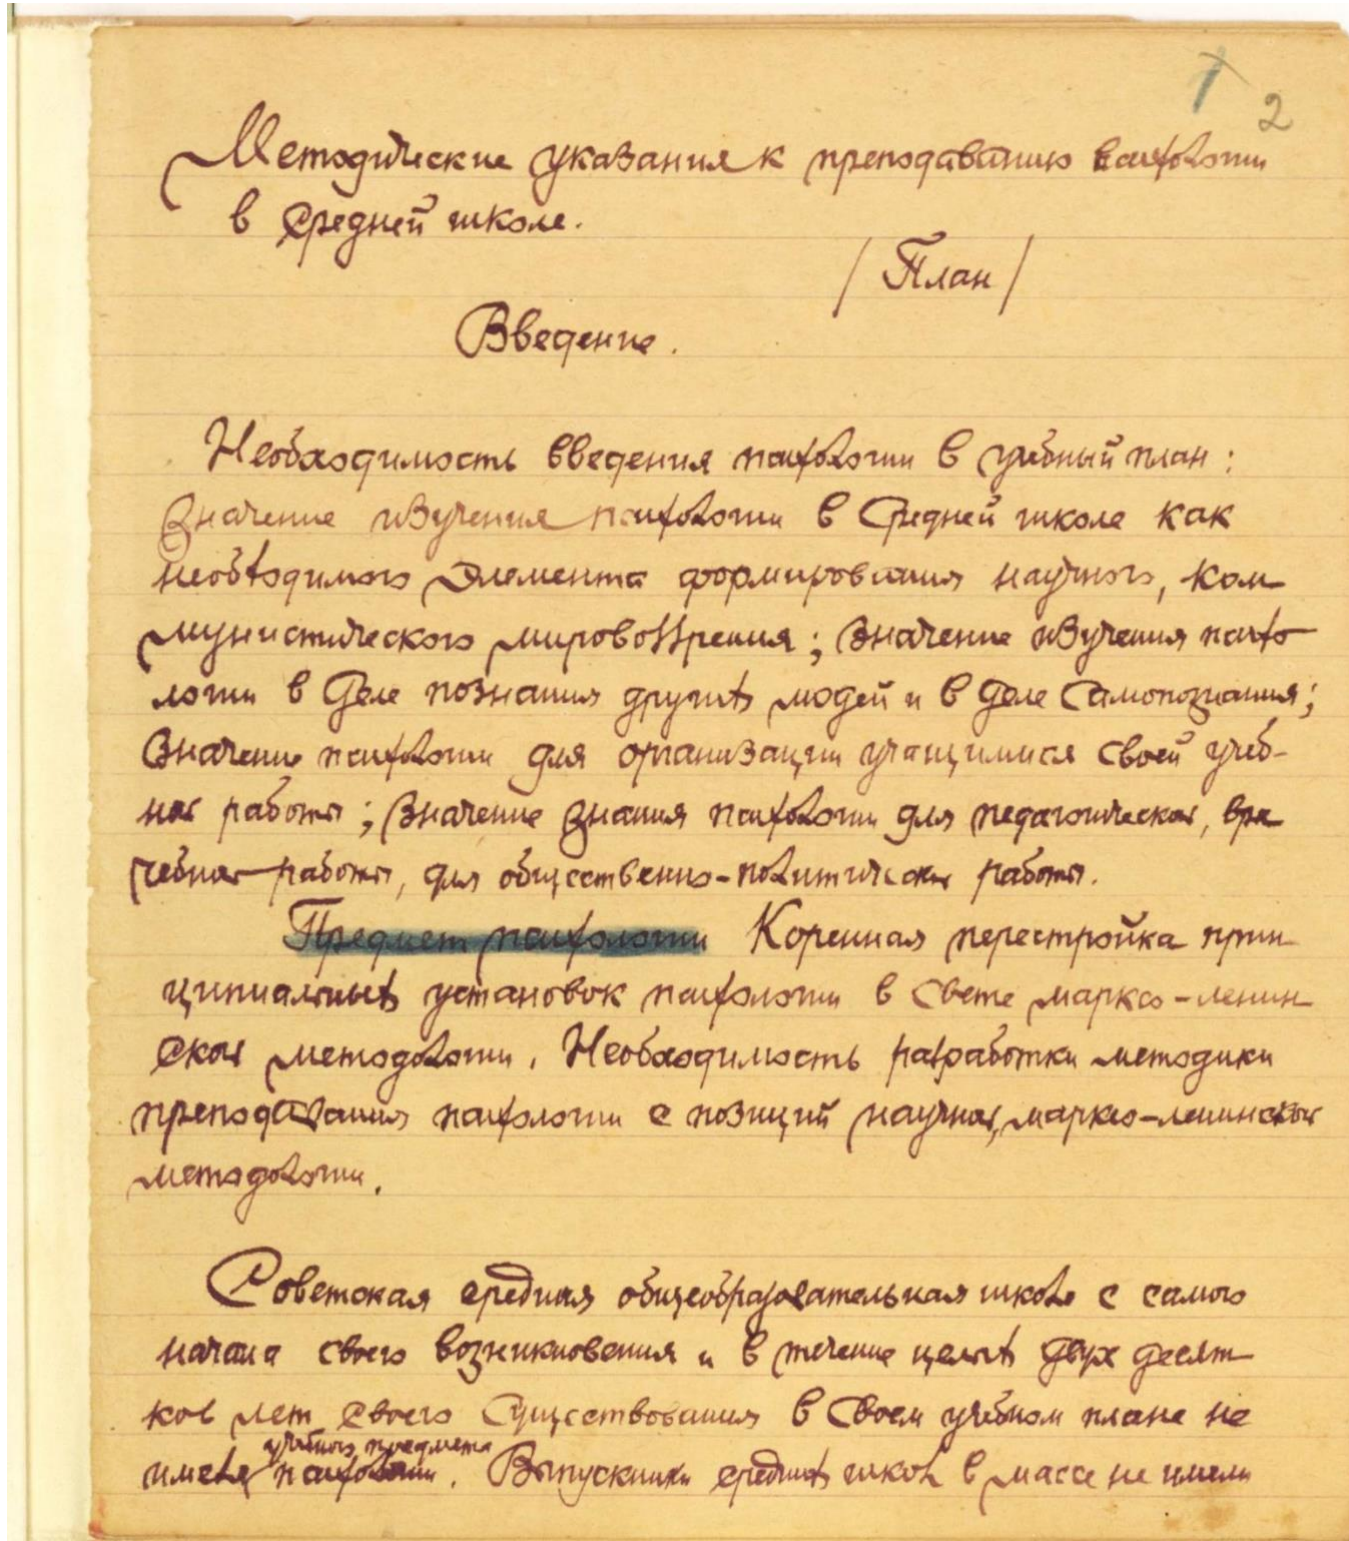 1 2
Методические указания к преподаванию психологии
в средней школе.
/План/
Введение.
Необходимость введения психологии в учебный план:
Значение изучения психологии в средней школе как
необходимого элемента формирования научного, ком-
мунистического мировоззрения; значение изучения психо-
логии в деле познания других людей и в деле самопознания;
значение психологии для организации учащимися своей учеб-
ной работы; значение знания психологии для педагогической, вра-
чебной работы, для общественно-политической работы.
Предмет психологии Коренная перестройка прин-
ципиальных установок психологии в свете марксо-ленин-
ской методологии. Необходимость разработки методики
преподавания психологии с позиций научной, марксо-ленинской
методологии.
Советская средняя общеобразовательная школа с самого
начала своего возникновения и в течение целых двух десят-
ков лет своего существования в своем учебном плане не
учебного предмета
имела психологии. Выпускники средних школ в массе не имели